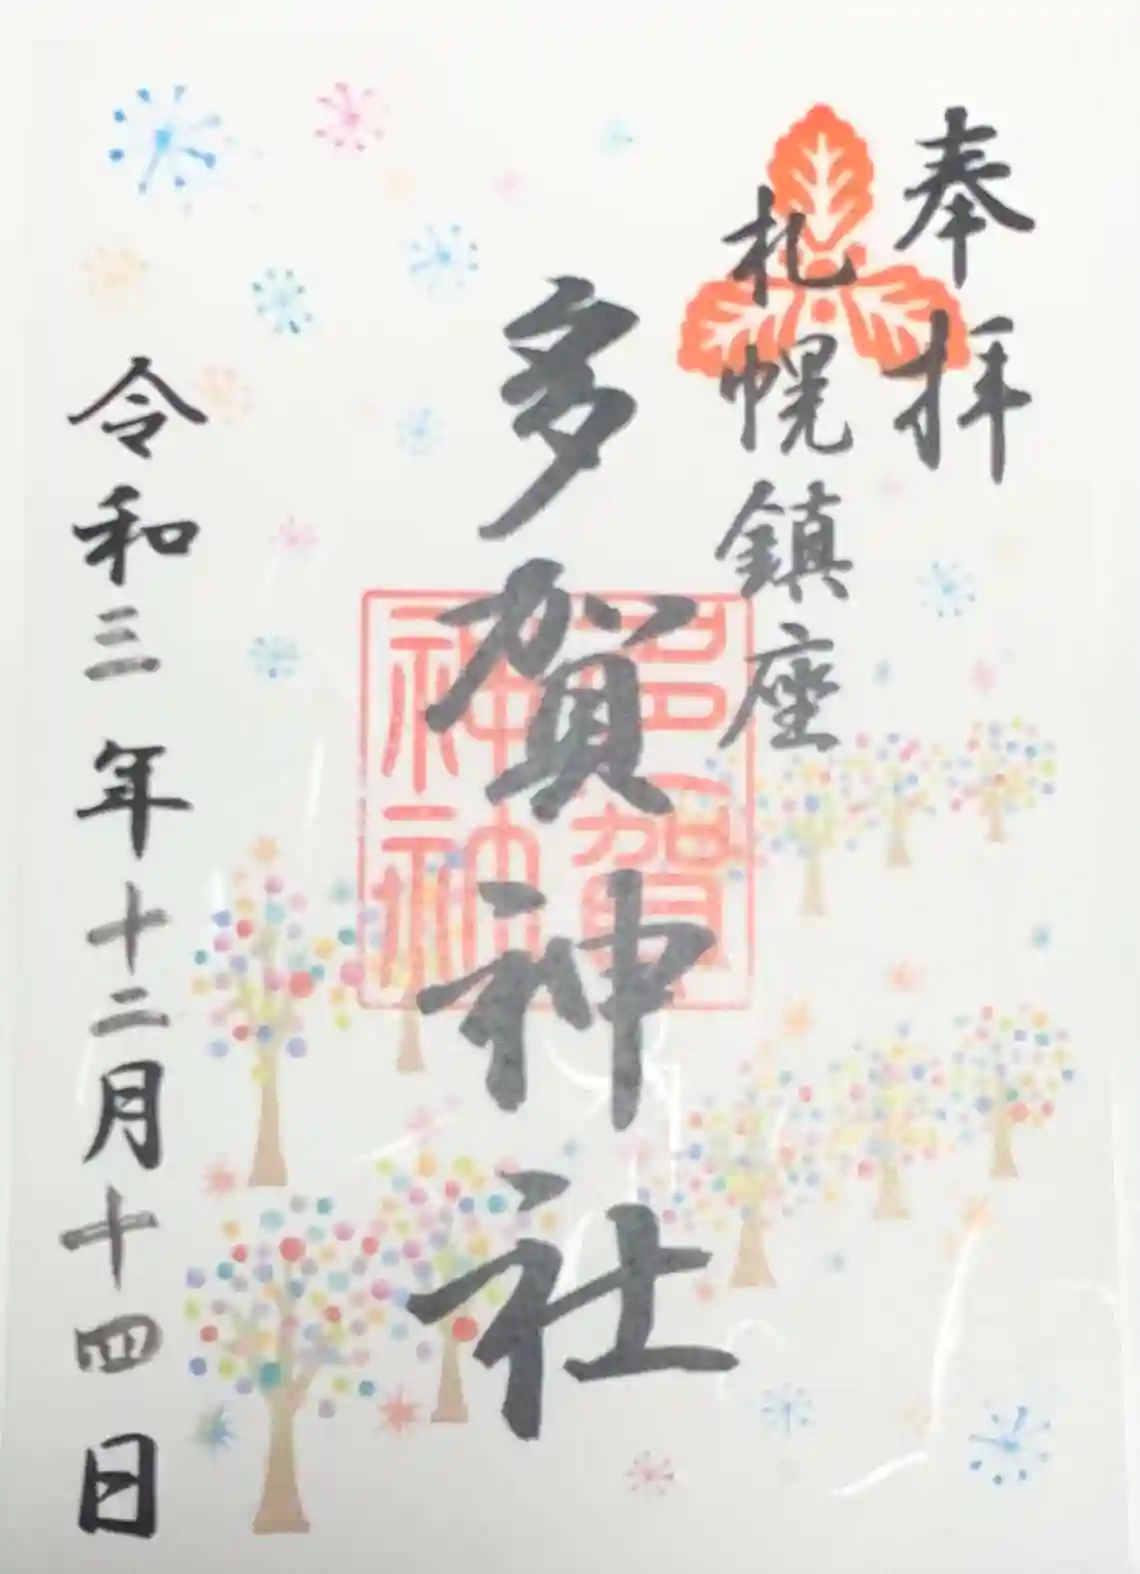 奉拝
札幌鎮座
多賀神社
多賀神社
令和三年十二月十四日